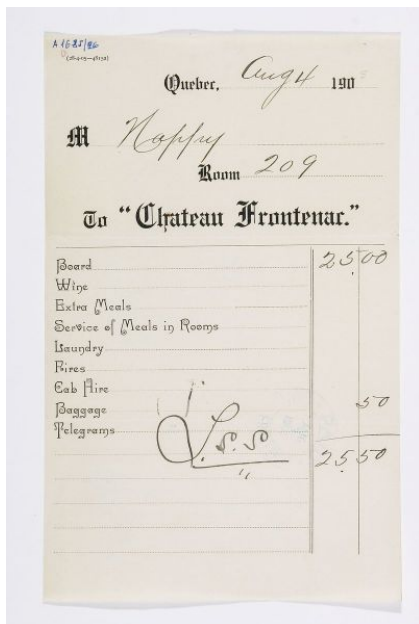 A 1685/86
Quebec, Aug 4 190
M Nappy
Room 209
To "Chateau Frontenac."
Board 25 00
Wine
Extra Meals
Service of Meals in Rooms
Laundry
Fires
Cab Hire
Baggage 50
Telegrams
25 50